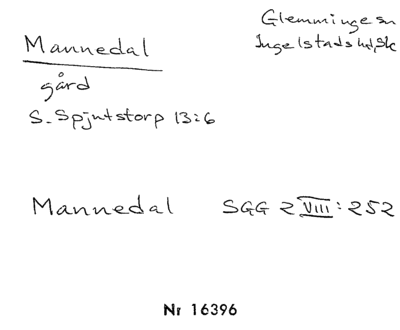 Mannedal
gård
S. Spjutstorp 13:6
Glemminge sn
Ingelstads hd, Sk
Mannedal SGG 2 VIII: 252
Nr 16396